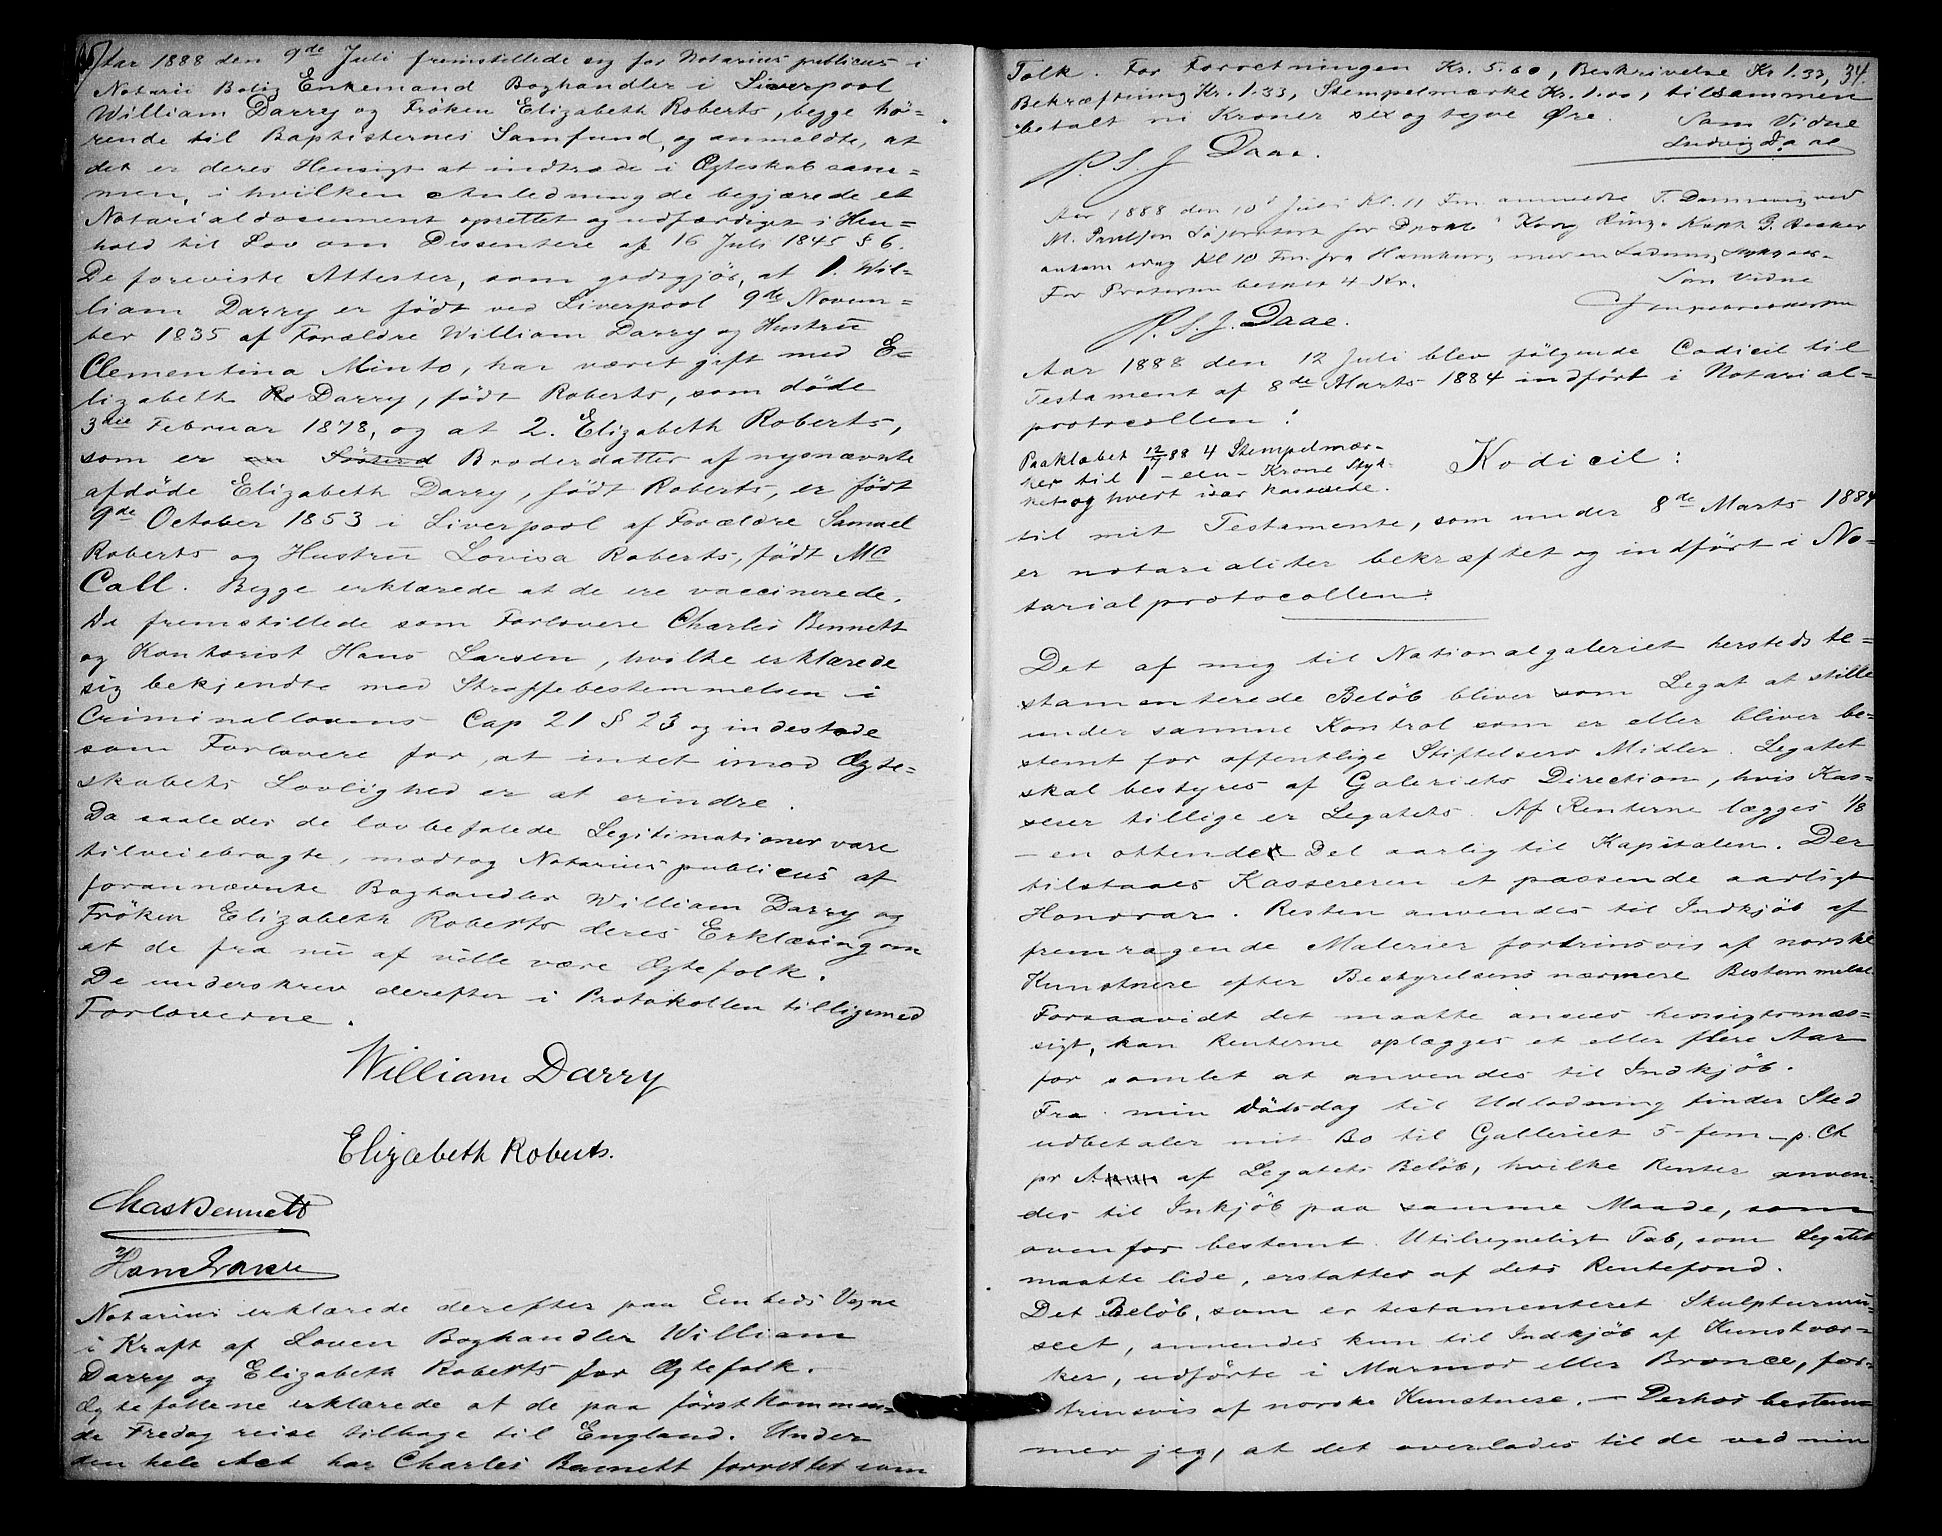 Aar 1888 den 9de Juli fremstillede sig for Notarius publicus i
Notarii Bolig Enkemand Boghandler i Liverpool
William Darry og Frøken Elizabeth Roberts, begge hø=
rende til Baptisternes Samfund, og anmeldte, at
det er deres Hensigt at indtræde i Ægteskab sam=
men, i hvilken Anledning de begjærede et
Notarialdocument oprettet og udfærdiget i Hen=
hold til Lov om Dissentere af 16 Juli 1845 § 6.
De foreviste Attester, som godtgjør, at 1. Wil=
liam Darry er født ved Liverpool 9de Novem=
ber 1835 af Forældre William Darry og Hustru
Clementina Minto, har været gift med E=
lizabeth Ro Darry, født Roberts, som døde
3die Februar 1878, og at 2. Elizabeth Roberts,
som er en Søsterd Broderdatter af nysnævnte
afdøde Elizabeth Darry, født Roberts, er født
9de October 1853 i Liverpool af Forældre Samuel
Roberts og Hustru Lovisa Roberts, født Mc
Call. Begge erklærede at de ere vaccinerede.
Da fremstillede som Forlovere Charles Bennett
og Kontorist Hans Larsen, hvilke erklærede
sig bekjendte med Straffebestemmelsen i
Criminallovens Cap 21 § 23 og indestode
som Forlovere for, at intet imod Ægte=
skabets Lovlighed er at erindre.
Da saaledes de lovbefalede Legitimationer vare
tilveiebragte, modtog Notarius publicus af
forannævnte Boghandler William Darry og
Frøken Elizabeth Roberts deres Erklæring om
at de fra nu af ville være Ægtefolk.
De underskrev derefter i Protokollen tilligemed
Forloverne.
William Darry
Elizabeth Roberts.
Chas Bennett
Hans Larsen
Notarius erklærede derefter paa Embeds Vegne
i Kraft af Loven Boghandler William
Darry og Elizabeth Roberts for Ægtefolk.
Ægtefolkene erklærede at de paa førstkommen=
de Fredag reise tilbage til England. Under
den hele Act har Charles Bennett forrettet som
34.
Tolk. For Forretningen Kr. 5.60, Beskrivelse Kr 1.33,
Bekræftning Kr. 1.33, Stempelmærke Kr. 1.00, tilsammen
betalt ni Kroner sex og tyve Øre.
Som Vidne
Ludvig Daae
P. S. J Daae.
Aar 1888 den 10d Juli Kl. 11 Fm. anmeldte T. Dannevig ved
M. Paulsen Søprotest for Kong Ring. Kapt.
ankom idag Kl 10 Fm. fra Hamburg med en Ladning Stykgods.
For Protesten betalt 4 Kr.
Som Vidne
P. S. J. Daae.
Aar 1888 den 12 Juli blev følgende Codicil til
Testament af 8de Marts 1884 indført i Notarial=
protocollen:
Paaklæbet 12/7 88 4 Stempelmær=
ker til 1 - een - Krone Styk=
ket og hvert især kasserede.
Kodicil:
til mit Testamente, som under 8de Marts 1884
er notarialiter bekræftet og indført i No=
tarialprotocollen:
Det af mig til Nationalgaleriet hersteds te=
stamenterede Beløb bliver som Legat at stille
under samme Kontrol som er eller bliver be=
stemt for offentlige Stiftelsers Midler. Legatet
skal bestyres af Galeriets Direction, hvis Kas=
serer tillige er Legatets. Af Renterne lægges 1/8
- en ottende Del aarlig til Kapitalen. Der
tilstaaes Kassereren et passende aarligt
Honorar. Resten anvendes til Indkjøb af
fremragende Malerier fortrinsvis af norske
Kunstnere efter Bestyrelsens nærmere Bestemmelse
Forsaavidt det maatte ansees hensigtsmæs=
sigt, kan Renterne oplægges et eller flere Aar
for samlet at anvendes til Indkjøb.
Fra min Dødsdag til Udlodning finder Sted
udbetaler mit Bo til Galleriet 5 - fem - p. Ct
pr A af Legatets Beløb, hvilke Renter anven=
des til Inkjøb paa samme Maade, som
ovenfor bestemt. Utilregneligt Tab, som Legatet
maatte lide, erstattes af dets Rentefond.
Det Beløb, som er testamenteret Skulpturmu=
seet, anvendes kun til Indkjøb af Kunstvær=
ker, udførte i Marmor eller Bronce, for=
trinsvis af norske Kunstnere. - Derhos bestem=
mer jeg, at det overlades til de ved min